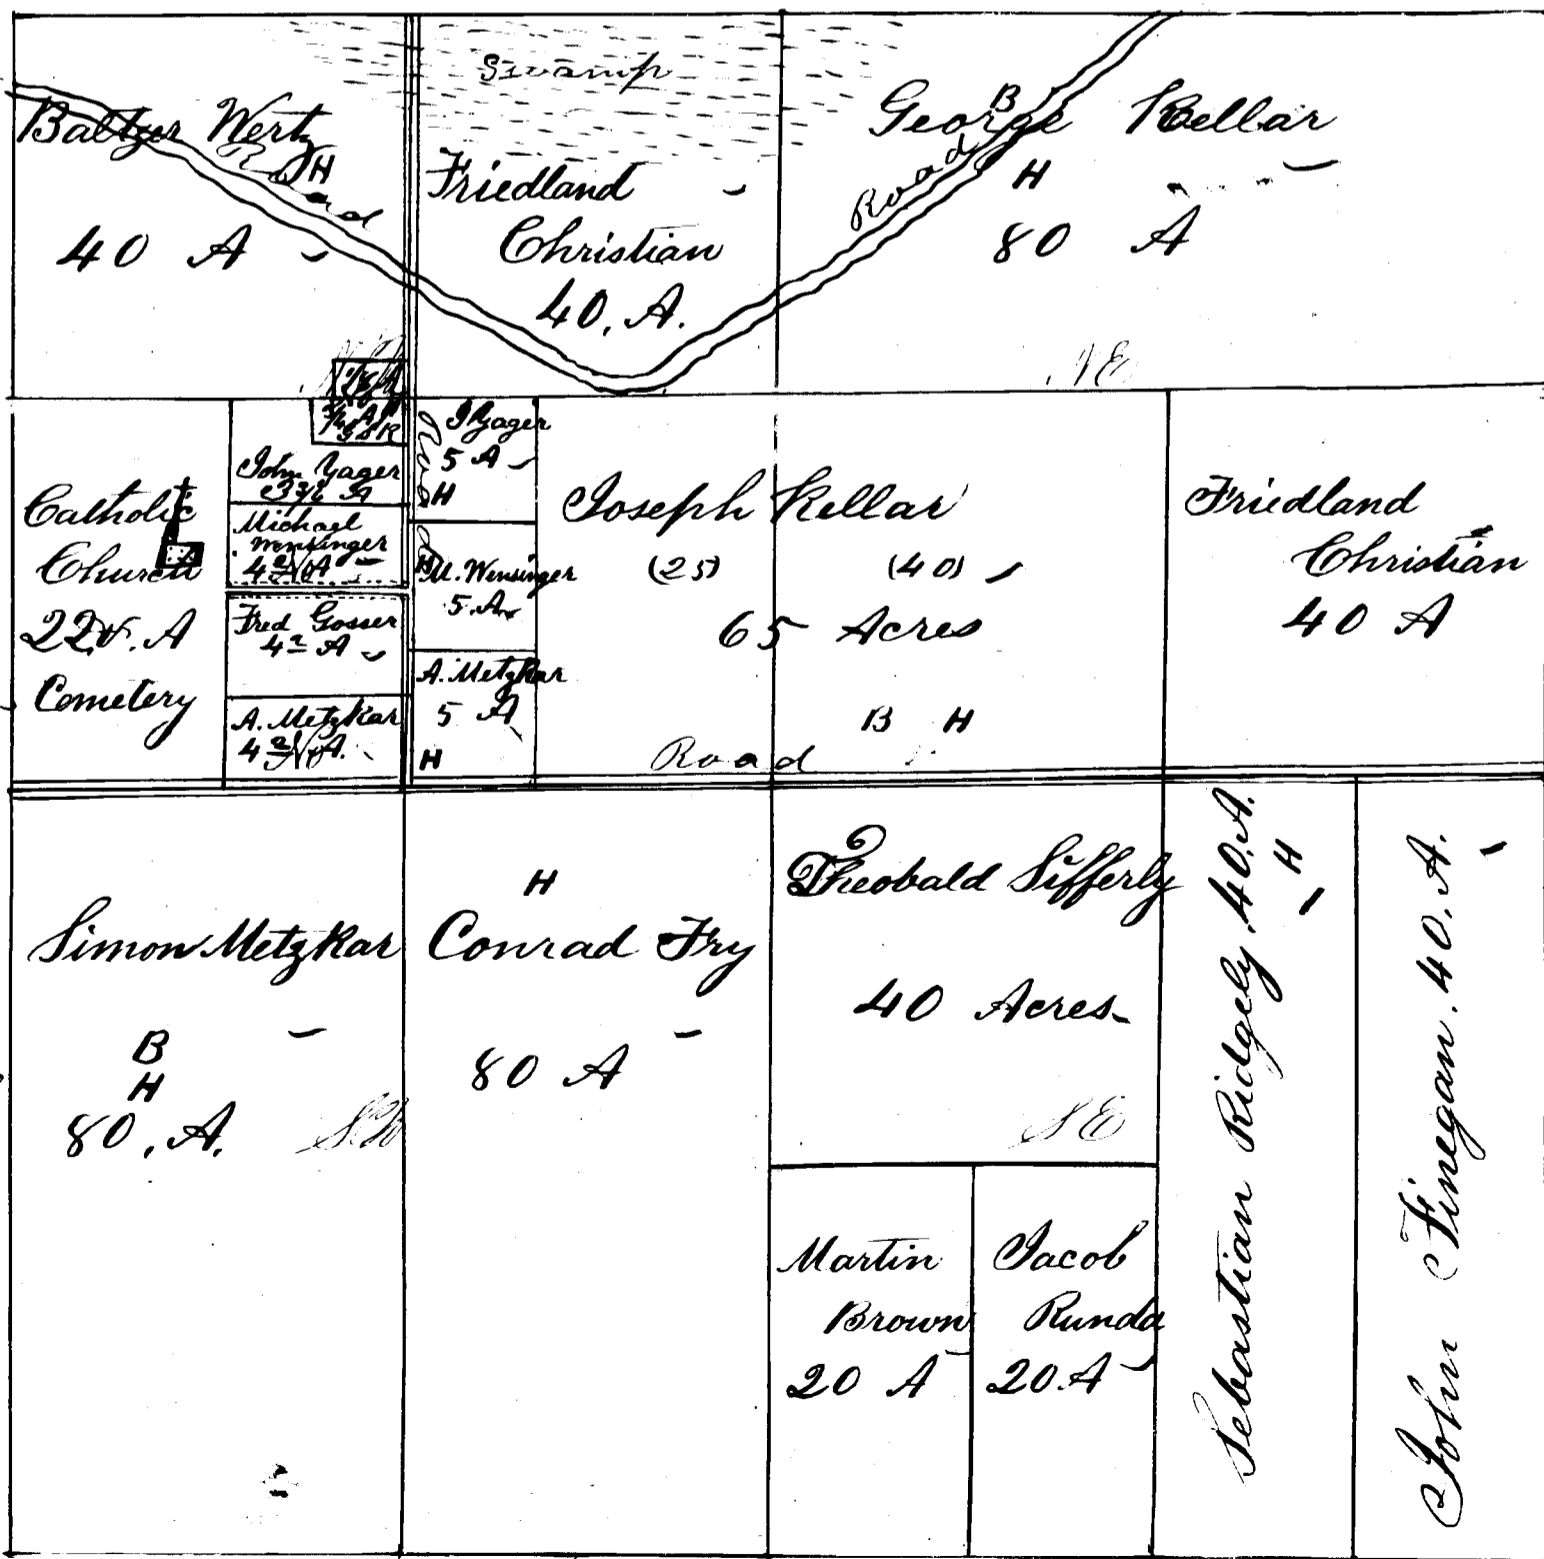 Swamp
Baltzer Wertz
Road
H
40 A
Friedland
Christian
40. A.
B
George Kellar
Road
H
80 A
NE
Catholic
Church
22 A
Cemetery
John Yager
A
Michael
Wensinger
A
Fred Gosser
A
A. Metzkar
A.
Road
J Yager
5 A
H
H
M. Wensinger
5 A
A. Metzkar
5 A
H
Joseph Kellar
(25) (40)
65 Acres
B H
Road
Friedland
Christian
40 A
Simon Metzkar
B
H
80. A.
SW
H
Conrad Fry
80 A
Theobald Sifferly
40 Acres
SE
Martin
Brown
20 A
Jacob
Runda
20. A
Sebastian Ridgely. 40. A.
H
John Finegan. 40. A.